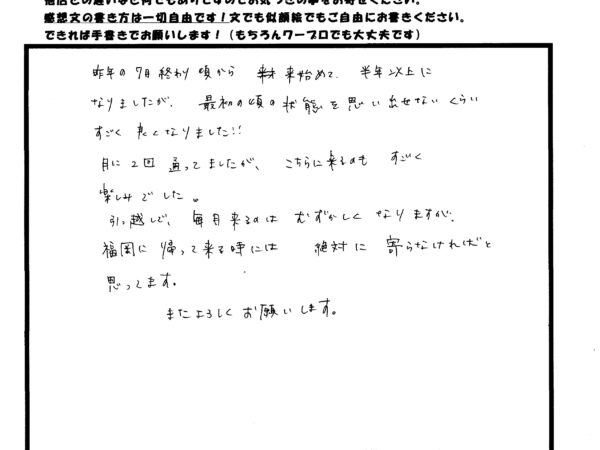 他店との違いなど何でもありますのでお気づきの事をお寄せください。
感想文の書き方は一切自由です！文でも似顔絵でもご自由にお書きください。
できれば手書きでお願いします！（もちろんワープロでも大丈夫です）
昨年の7月終わり頃から 来始めて、半年以上に
なりましたが、最初の頃の状態を思い出せないくらい
すごく良くなりました!!
月に2回通ってましたが、こちらに来るのも すごく
楽しみでした。
引っ越しで、毎月来るのは むずかしくなりますが、
福岡に帰って来る時には 絶対に寄らなければと
思ってます。
またよろしくお願いします。